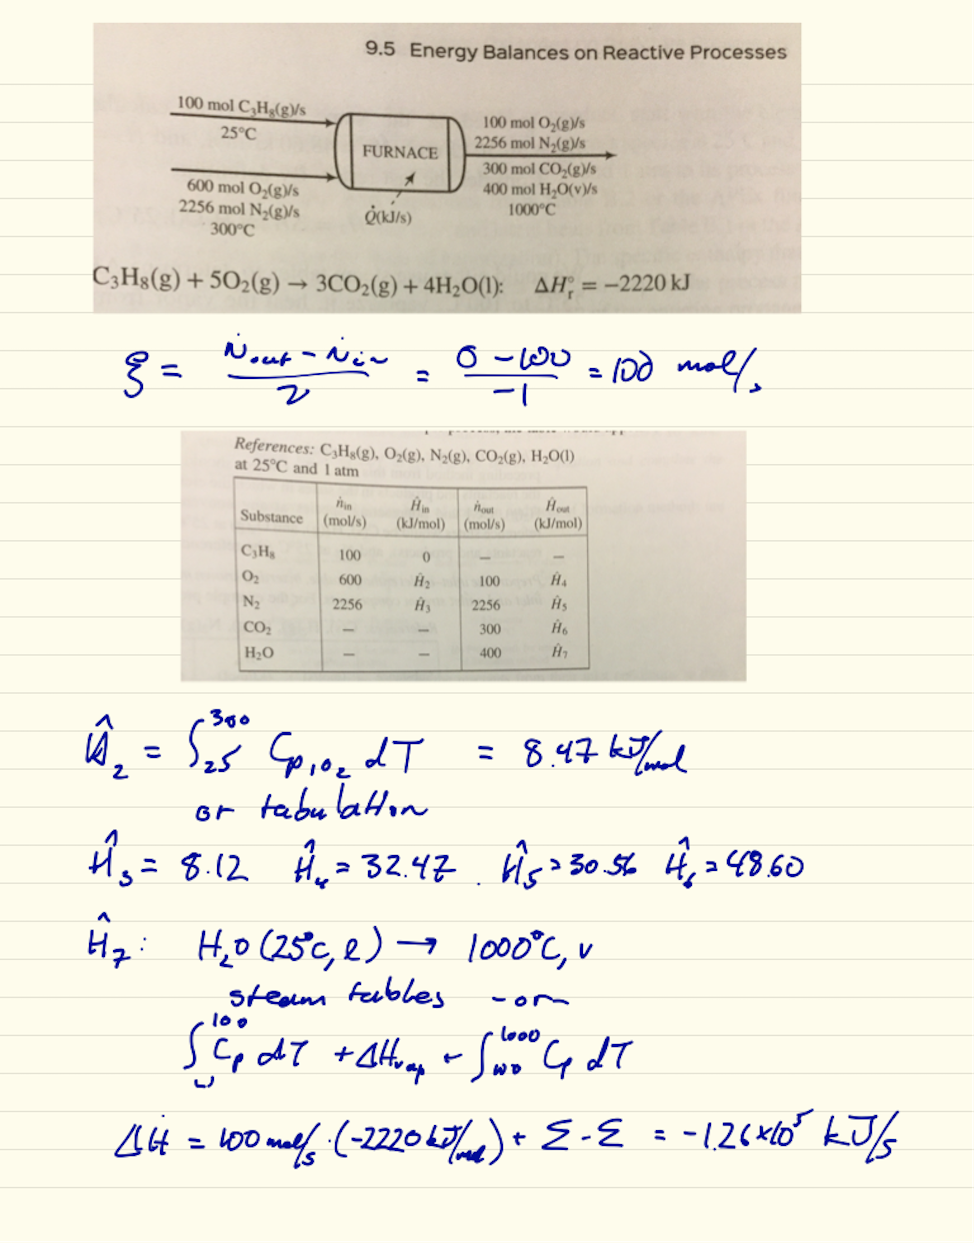 9.5 Energy Balances on Reactive Processes
100 mol C₃H₈(g)/s
25°C
600 mol O₂(g)/s
2256 mol N₂(g)/s
300°C
FURNACE
Q̇(kJ/s)
100 mol O₂(g)/s
2256 mol N₂(g)/s
300 mol CO₂(g)/s
400 mol H₂O(v)/s
1000°C
C₃H₈(g) + 5O₂(g) → 3CO₂(g) + 4H₂O(l): ΔHᵣ° = −2220 kJ
ξ = (Ṅout − Ṅin)/ν = (0 − 100)/−1 = 100 mol/s
References: C₃H₈(g), O₂(g), N₂(g), CO₂(g), H₂O(l)
at 25°C and 1 atm
Substance ṅin (mol/s) Ĥin (kJ/mol) ṅout (mol/s) Ĥout (kJ/mol)
C₃H₈ 100 0 — —
O₂ 600 Ĥ₂ 100 Ĥ₄
N₂ 2256 Ĥ₃ 2256 Ĥ₅
CO₂ — — 300 Ĥ₆
H₂O — — 400 Ĥ₇
Ĥ₂ = ∫₂₅³⁰⁰ Cp,O₂ dT = 8.47 kJ/mol
or tabulation
Ĥ₃ = 8.12 Ĥ₄ = 32.47 . Ĥ₅ = 30.56 Ĥ₆ = 48.60
Ĥ₇: H₂O (25°C, l) → 1000°C, v
steam tables -or-
∫¹⁰⁰ Cp dT + ΔHvap + ∫₁₀₀¹⁰⁰⁰ Cp dT
ΔḢ = 100 mol/s · (-2220 kJ/mol) + Σ - Σ = -1.26×10⁵ kJ/s